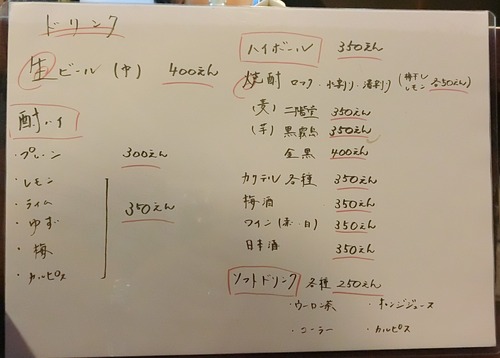 ドリンク
生ビール (中) 400えん
酎ハイ
・プレーン 300えん
・レモン
・ライム
・ゆず 350えん
・梅
・カルピス
ハイボール 350えん
焼酎 ロック・水割り・湯割り (梅干し レモン 各50えん)
(麦) 二階堂 350えん
(芋) 黒霧島 350えん
金黒 400えん
カクテル 各種 350えん
梅酒 350えん
ワイン (赤・白) 350えん
日本酒 350えん
ソフトドリンク 各種 250えん
・ウーロン茶 ・オレンジジュース
・コーラー ・カルピス